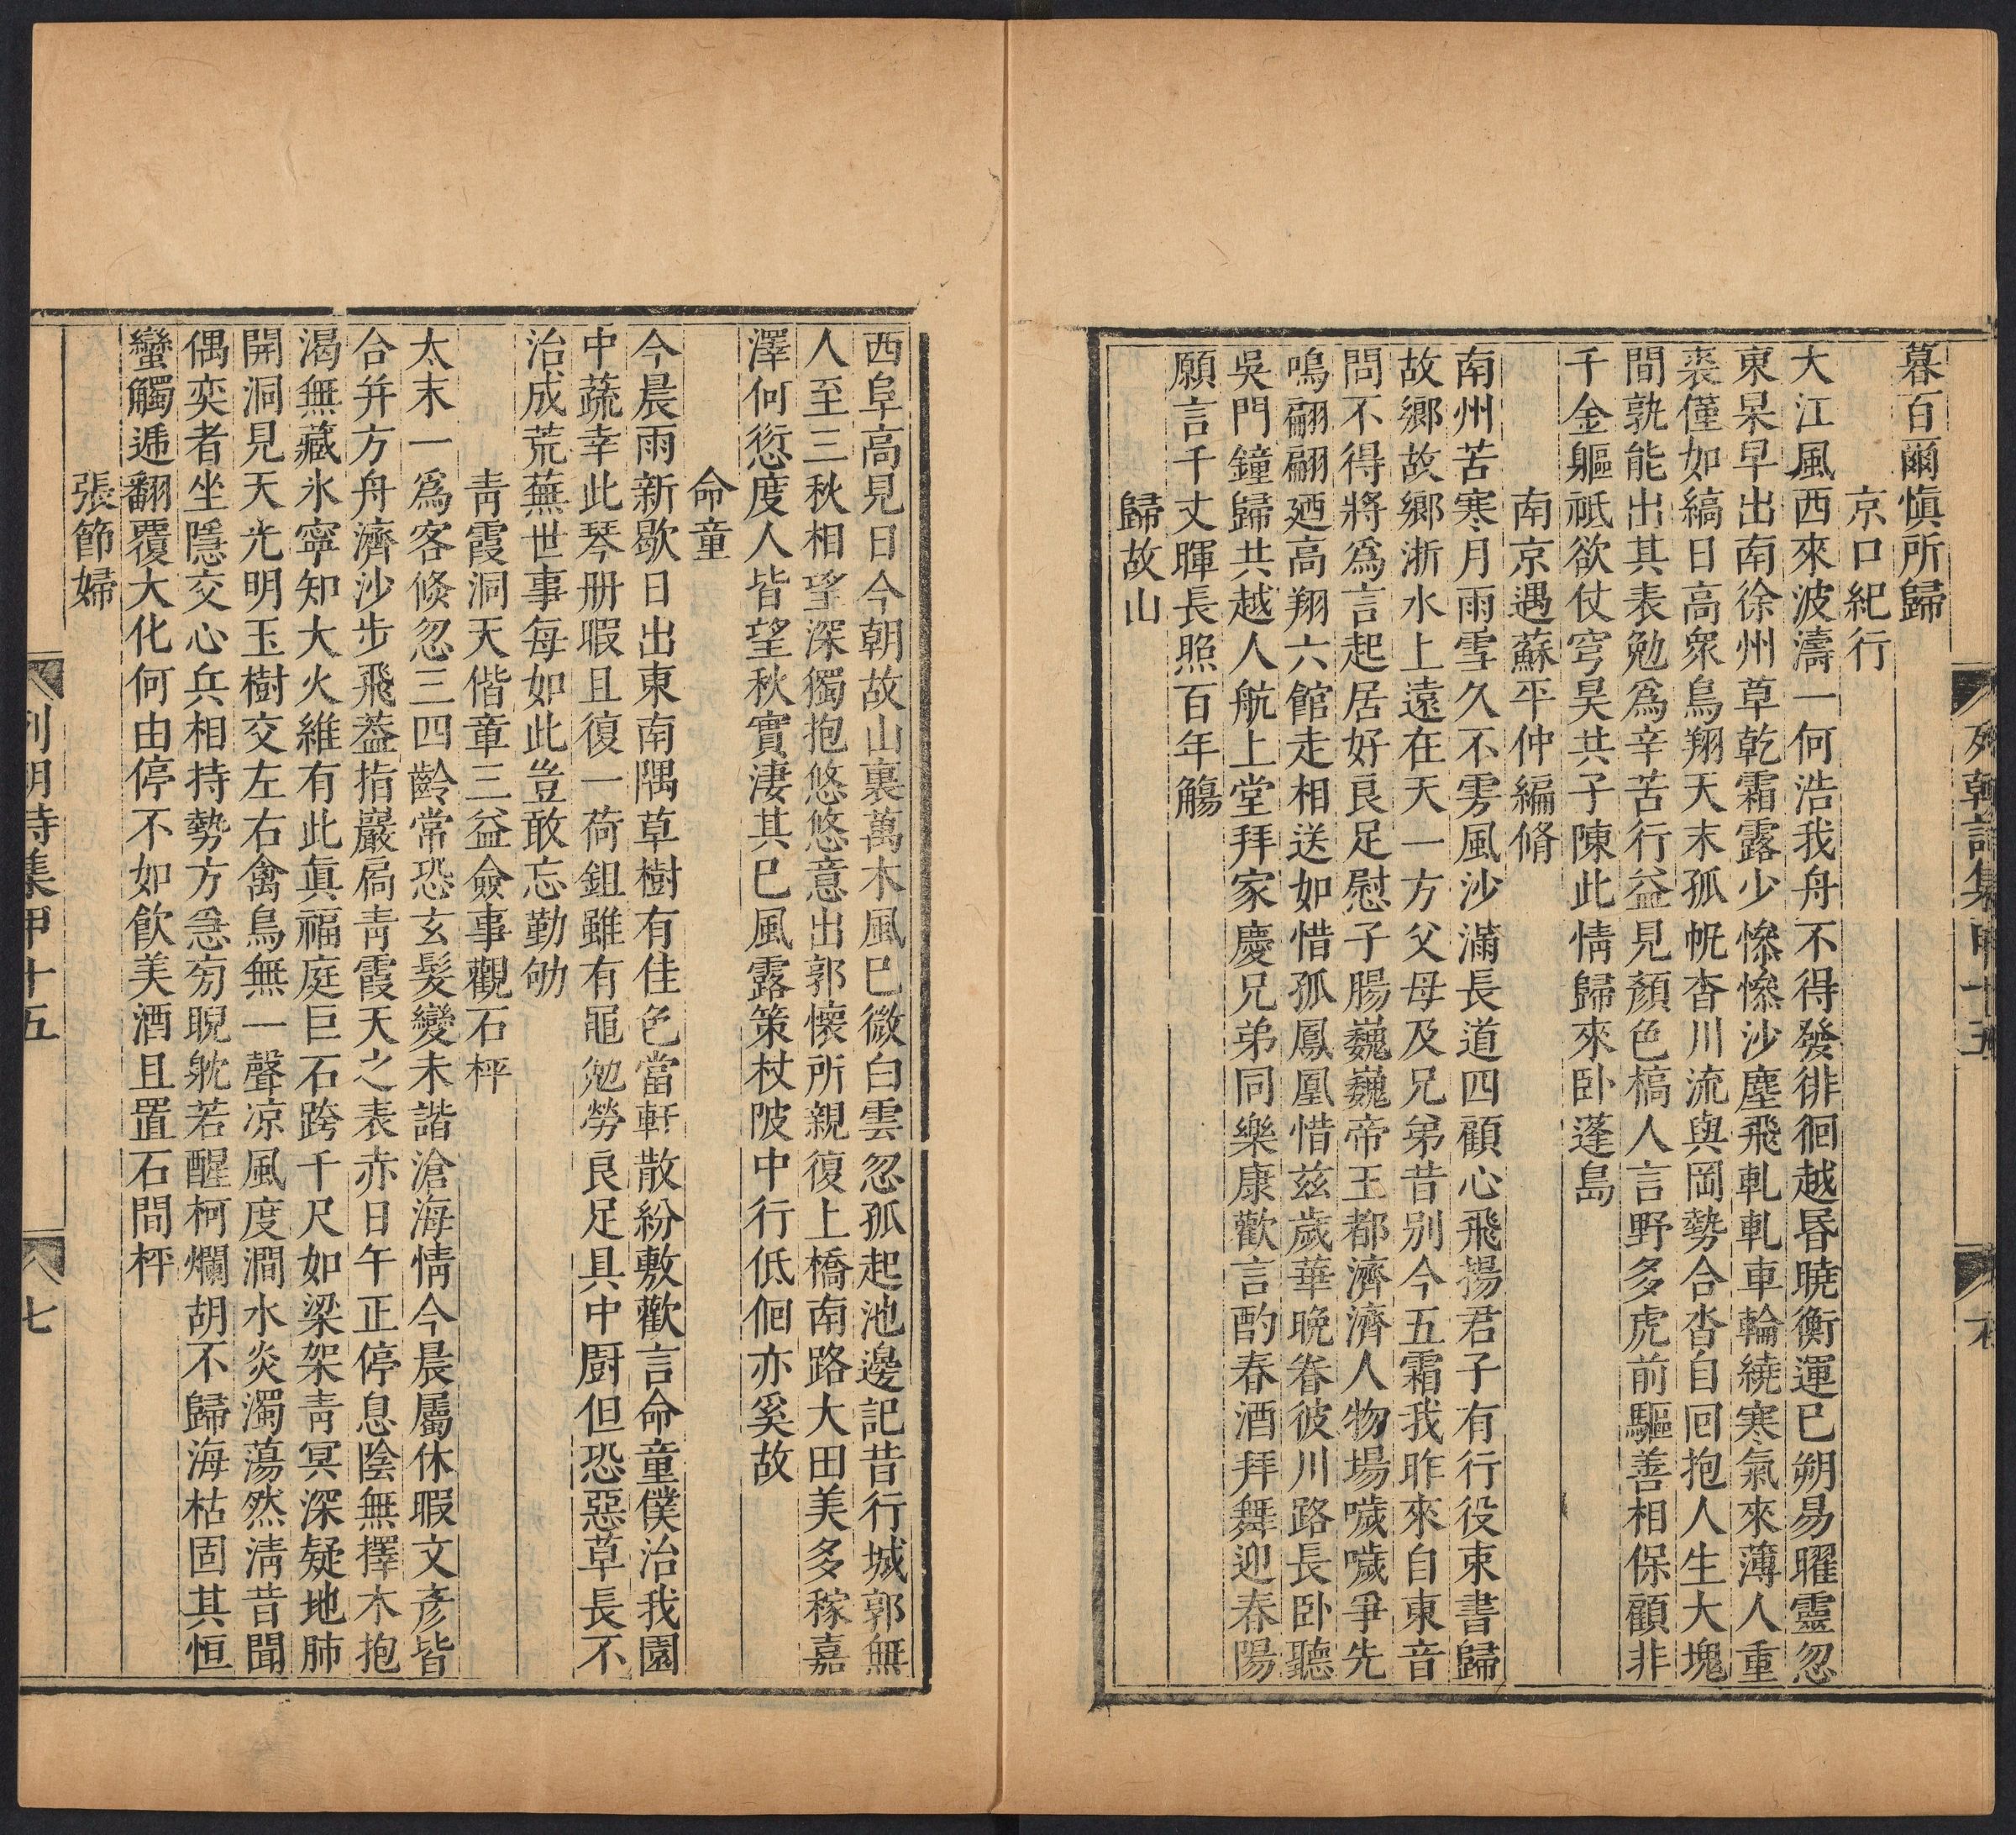 暮百爾愼所歸
京口紀行
大江風西來波濤一何浩我舟不得發徘徊越昏曉衡運已朔易曜靈忽
東杲早出南徐州草乾霜露少慘慘沙塵飛軋軋車輪繞寒氣來薄人重
裘僅如縞日高衆鳥翔天末孤帆杳川流與岡勢合沓自回抱人生大塊
間孰能出其表勉爲辛苦行益見顏色槁人言野多虎前驅善相保顧非
千金軀祗欲仗穹昊共子陳此情歸來卧蓬島
南京遇蘇平仲編脩
南州苦寒月雨雪久不雱風沙滿長道四顧心飛揚君子有行役束書歸
故鄉故鄉浙水上遠在天一方父母及兄弟昔别今五霜我昨來自東音
問不得將爲言起居好良足慰子腸巍巍帝王都濟濟人物場噦噦爭先
鳴翩翩廼高翔六館走相送如惜孤鳳凰惜兹歲華晚眷彼川路長卧聽
吳門鐘歸共越人航上堂拜家慶兄弟同樂康歡言酌春酒拜舞迎春陽
願言千丈暉長照百年觴
歸故山
西阜高見日今朝故山裏萬木風已微白雲忽孤起池邊記昔行城郭無
人至三秋相望深獨抱悠悠意出郭懷所親復上橋南路大田美多稼嘉
澤何愆度人皆望秋實淒其已風露策杖陂中行低佪亦奚故
命童
今晨雨新歇日出東南隅草樹有佳色當軒散紛敷歡言命童僕治我園
中蔬幸此琴册暇且復一荷鉏雖有黽勉勞良足具中厨但恐惡草長不
治成荒蕪世事每如此豈敢忘勤劬
靑霞洞天偕章三益僉事觀石枰
太末一爲客倐忽三四齡常恐玄髮變未諧滄海情今晨屬休暇文彥皆
合幷方舟濟沙步飛葢指巖扃靑霞天之表赤日午正停息陰無擇木抱
渴無藏氷寧知大火維有此眞福庭巨石跨千尺如梁架靑冥深疑地肺
開洞見天光明玉樹交左右禽鳥無一聲凉風度澗水炎濁蕩然淸昔聞
偶奕者坐隱交心兵相持勢方急旁睨躭若醒柯爛胡不歸海枯固其恒
蠻觸遞翻覆大化何由停不如飲美酒且置石間枰
張節婦
列朝詩集甲十五
七